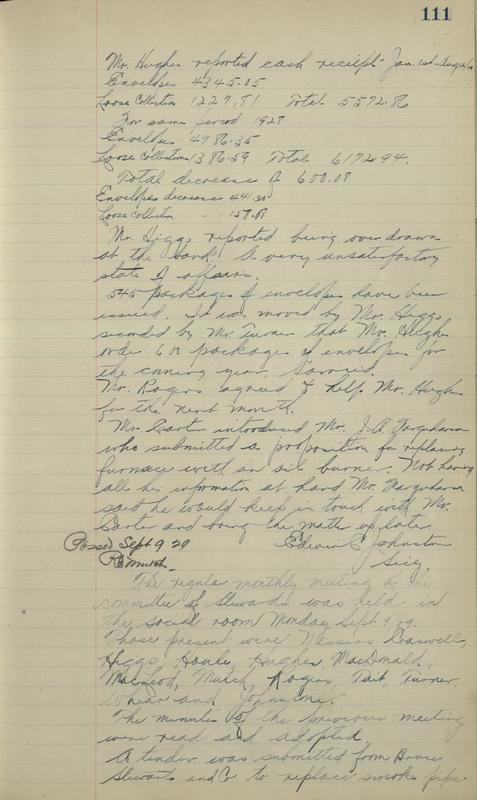 111
Mr. Hughes reported cash receipts Jan. 1st -
Envelopes 4345.05
Loose Collection 1227.81 Total 5572.86
For same period 1928
Envelopes 4786.35
Loose Collections 1386.59 Total 6172.94.
Total decrease of 600.08
Envelopes decrease 441.30
Loose Collection " " 157.08
Mr. Higgs reported being over drawn
at the bank. A very unsatisfactory
state of affairs.
545 packages of envelopes have been
issued. It was moved by Mr. Higgs
seconded by Mr. Turner that Mr. Hughes
order 600 packages of envelopes for
the coming year. Carried.
Mr. Rogers agreed to help Mr. Hughes
for the next month.
Mr. Carter introduced Mr. J. A. Farquharson
who submitted a proposition for replacing
furnace with an oil burner. Not having
all his information at hand Mr. Farquharson
said he would keep in touch with Mr.
Carter and bring the matter up later.
Passed Sept 9 29 Edwin C Johnston
Secy.
The regular monthly meeting of the
committee of Stewards was held in
the social room Monday Sept. 9/29.
Those present were Messers Braswell,
Higgs, Houle, Hughes, MacDonald,
MacLeod, Mutch, Rogers, Tait, Turner,
and Johnstone.
The minutes of the previous meeting
were read and adopted.
A tender was submitted from
Stewart and Co to replace smoke pipe.